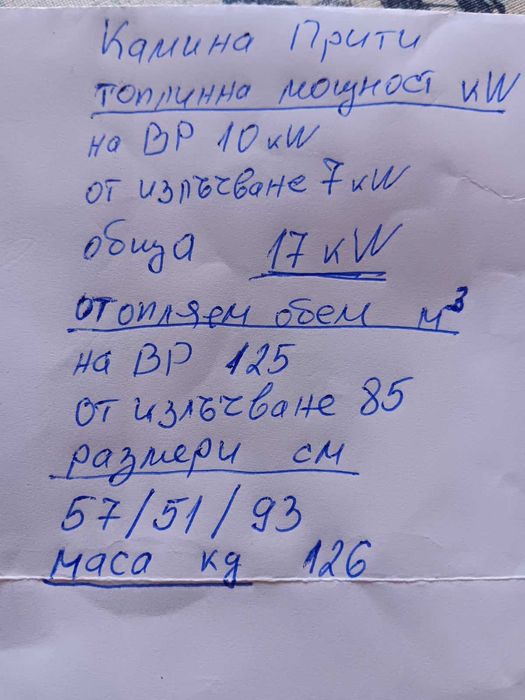 Камина Прити
топлинна мощност кW
на ВР 10 кW
от излъчване 7 кW
обща 17 кW
отопляем обем м³
на ВР 125
от излъчване 85
размери см
57/51/93
маса кg 126